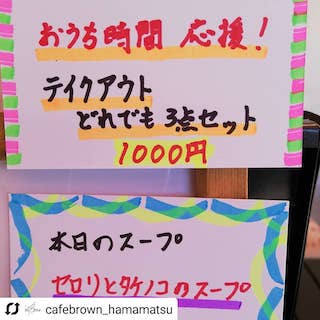 おうち時間 応援！
テイクアウト
どれでも 3点セット
1000円
本日のスープ
セロリとタケノコのスープ
cafebrown_hamamatsu